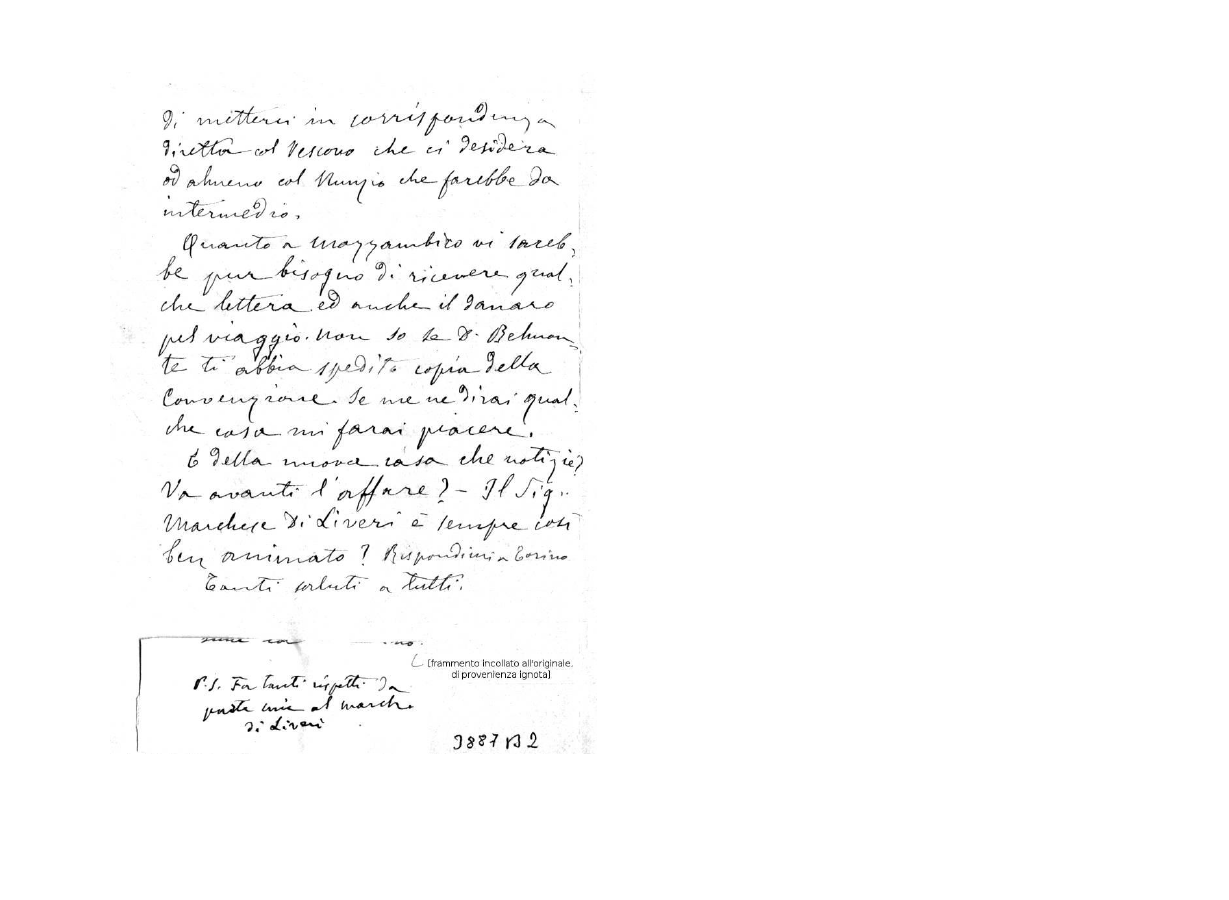 di metterci in corrispondenza
diretta col Vescovo che ci desidera
od almeno col Nunzio che farebbe da
intermedio.
Quanto a Mozzambico vi sareb-
be pur bisogno di ricevere qual-
che lettera ed anche il danaro
pel viaggio. Non so se D. Belmon-
te ti abbia spedito copia della
Convenzione. Se me ne dirai qual-
che cosa mi farai piacere.
E della nuova casa che notizie?
Va avanti l'affare? - Il Sig.
Marchese Di Liveri è sempre così
ben animato? Rispondimi a Torino
Tanti saluti a tutti.
[frammento incollato all'originale,
di provenienza ignota]
P.S. Fa tanti rispetti da
parte mia al march.
di Liveri
3887 B 2